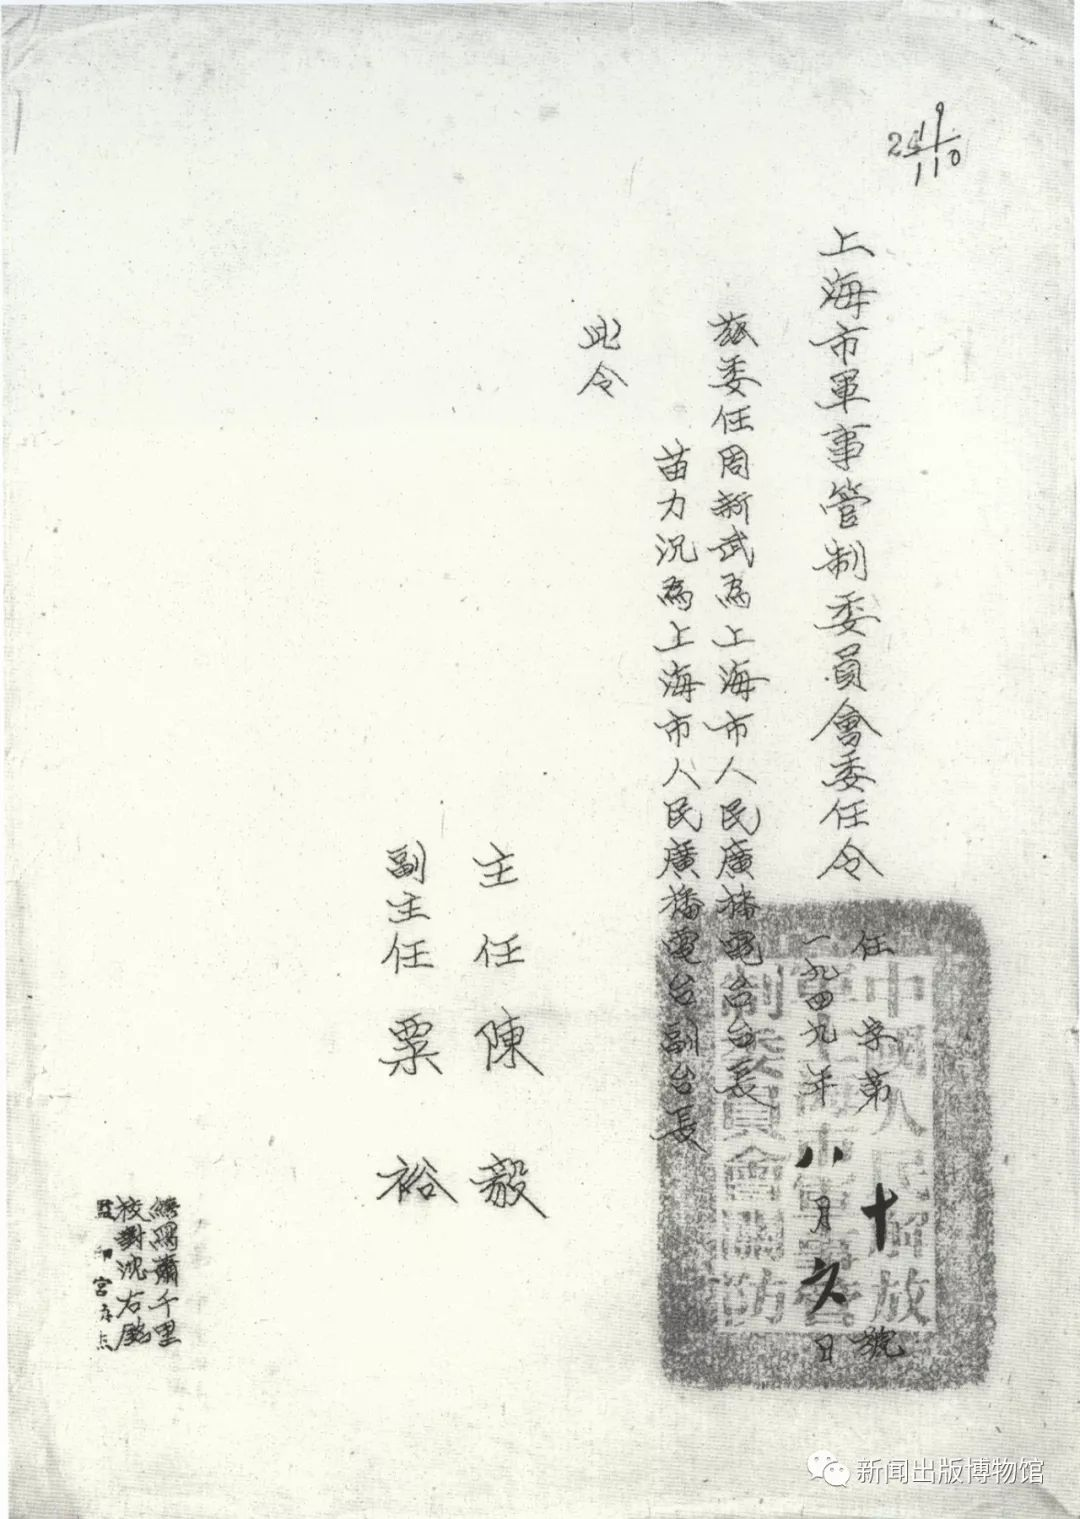 上海市軍事管制委員會委任令
任字第十號
一九四九年八月六日
茲委任周新武為上海市人民廣播電台台長
苗力沉為上海市人民廣播電台副台長
此令
主任陳毅
副主任粟裕
繕寫蕭千里
校對沈右銘
監印宮
中國人民解放
軍上海市軍事管
制委員會關防
新闻出版博物馆